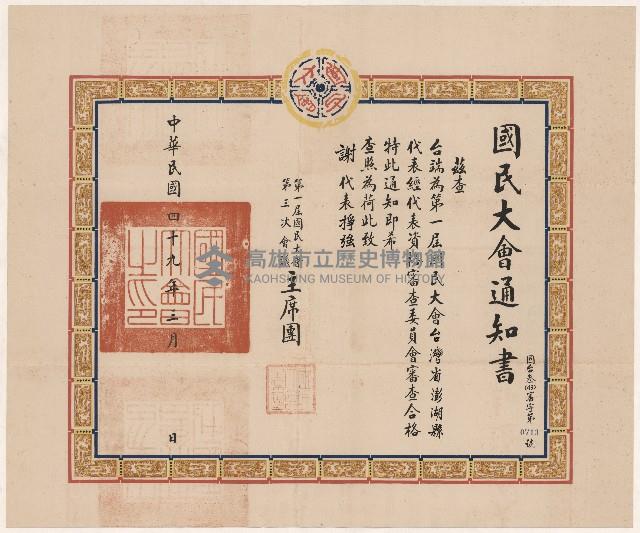 國民大會通知書
國台叁(49)審字第
0713
號
茲查
台端為第一屆國民大會台灣省澎湖縣
代表經代表資格審查委員會審查合格
特此通知即希
查照為荷此致
謝代表掙強
第一屆國民大會
第三次會議
主席團
中華民國四十九年三月 日
國民大會之印
高雄市立歷史博物館
KAOHSIUNG MUSEUM OF HISTORY